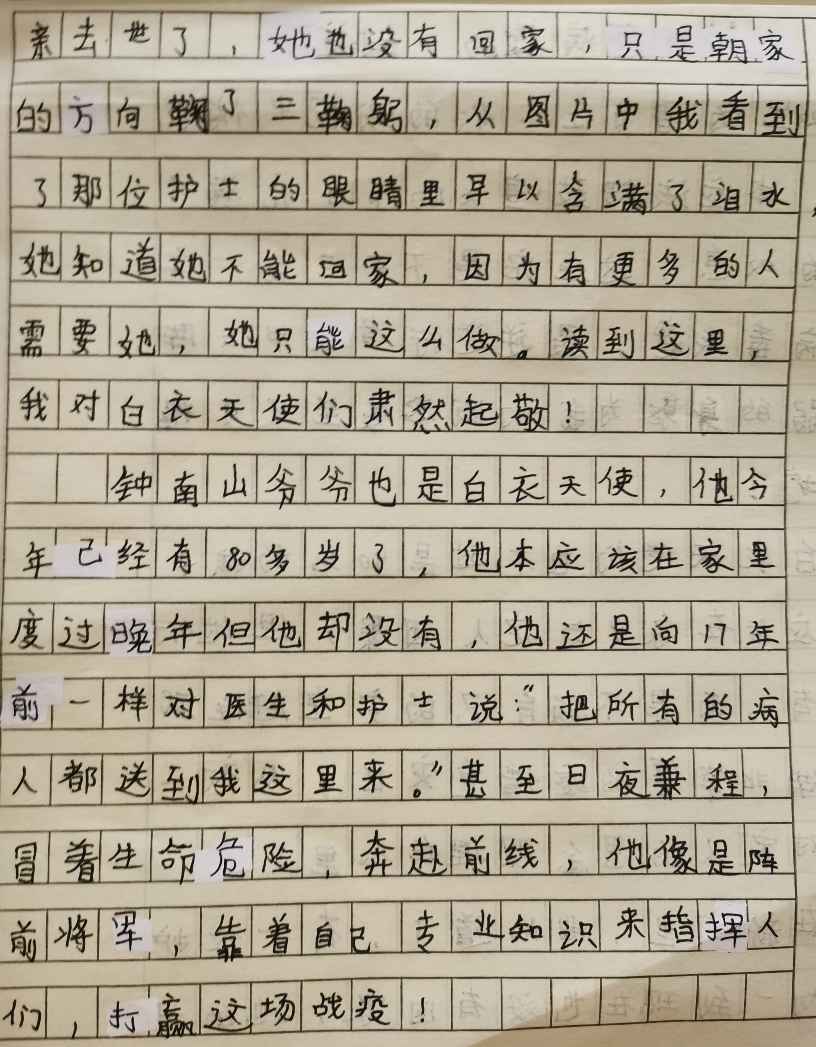 亲去世了，她也没有回家，只是朝家
的方向鞠了三鞠躬，从图片中我看到
了那位护士的眼睛里早以含满了泪水，
她知道她不能回家，因为有更多的人
需要她，她只能这么做。读到这里，
我对白衣天使们肃然起敬！
钟南山爷爷也是白衣天使，他今
年已经有80多岁了，他本应该在家里
度过晚年但他却没有，他还是向17年
前一样对医生和护士说：“把所有的病
人都送到我这里来。”甚至日夜兼程，
冒着生命危险，奔赴前线，他像是阵
前将军，靠着自己专业知识来指挥人
们，打赢这场战疫！